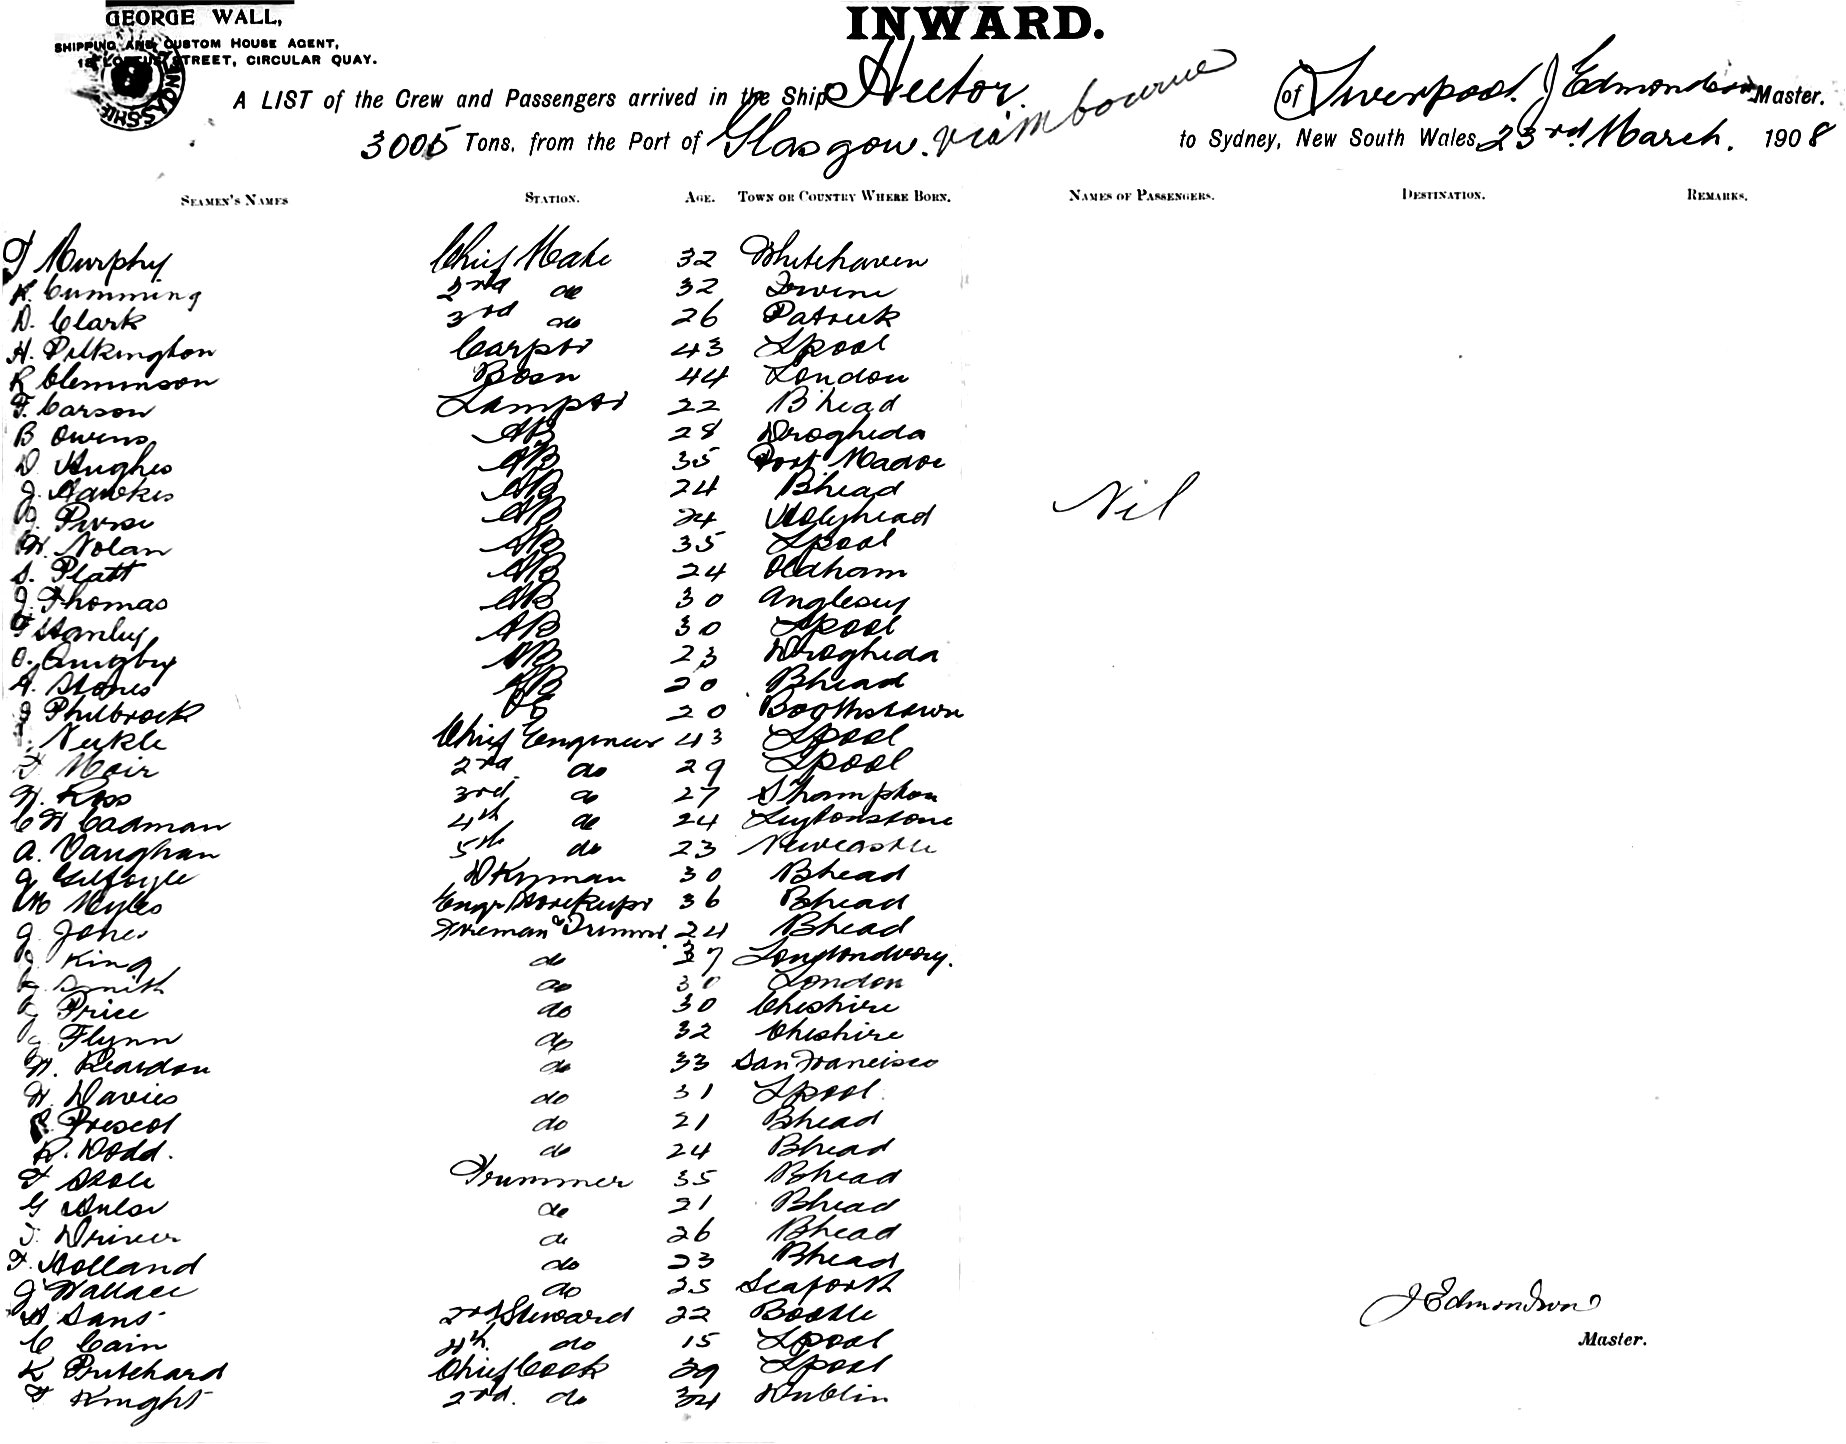 GEORGE WALL,
SHIPPING AND CUSTOM HOUSE AGENT,
STREET, CIRCULAR QUAY.
INWARD.
A LIST of the Crew and Passengers arrived in the Ship Hector. of Liverpool. J Edmondson Master.
3005 Tons, from the Port of Glasgow. via Mbourne to Sydney, New South Wales, 23rd March. 1908
SEAMEN'S NAMES STATION. AGE. TOWN OR COUNTRY WHERE BORN. NAMES OF PASSENGERS. DESTINATION. REMARKS.
T Murphy Chief Mate 32 Whitehaven
R. Cumming 2nd do 32 Irvine
D. Clark 3rd do 26 Patrick
H. Pilkington Carptr 43 Lpool
R Cleminson Bosn 44 London
F. Carson Lamptr 22 B'head
B Owens AB 28 Drogheda
D. Hughes AB 35 Port Madoc
J. Hawkes AB 24 Bhead
Purse AB 24 Holyhead
Nil
W. Nolan AB 35 Lpool
S. Platt AB 24 Oldham
J. Thomas AB 30 Anglesey
T Hanley AB 30 Lpool
O. AB 23 Drogheda
A. Stones AB 20 Bhead
J Philbrook 20 Boothstown
Chief Engineer 43 Lpool
Moir 2nd do 29 Lpool
W. Ross 3rd do 27 S'hampton
C H Cadman 4th do 24 Leytonstone
A. Vaughan 5th do 23 Newcastle
J Gilfoyle Dkyman 30 Bhead
Wm Myles Engr Storekeepr 36 Bhead
J. Jones Fireman & Trimmr. 24 Bhead
J King do 37 Londondery.
J. Smith do 30 London
J Price do 30 Cheshire
J Flynn do 32 Cheshire
W. Reardon do 33 San Francisco
H. Davies do 31 Lpool.
Prescot do 21 Bhead
R. Dodd. do 24 Bhead
F Trimmer 35 Bhead
G do 21 Bhead
T. Driver do 26 Bhead
F. Holland do 23 Bhead
J Wallace do 25 Seaforth
A Sans 2nd Steward 22 Bootle
J Edmondson
C Cain 4th. do 15 Lpool
Master.
K Pritchard Chief Cook 39 Lpool
F Knight 2nd. do 34 Dublin